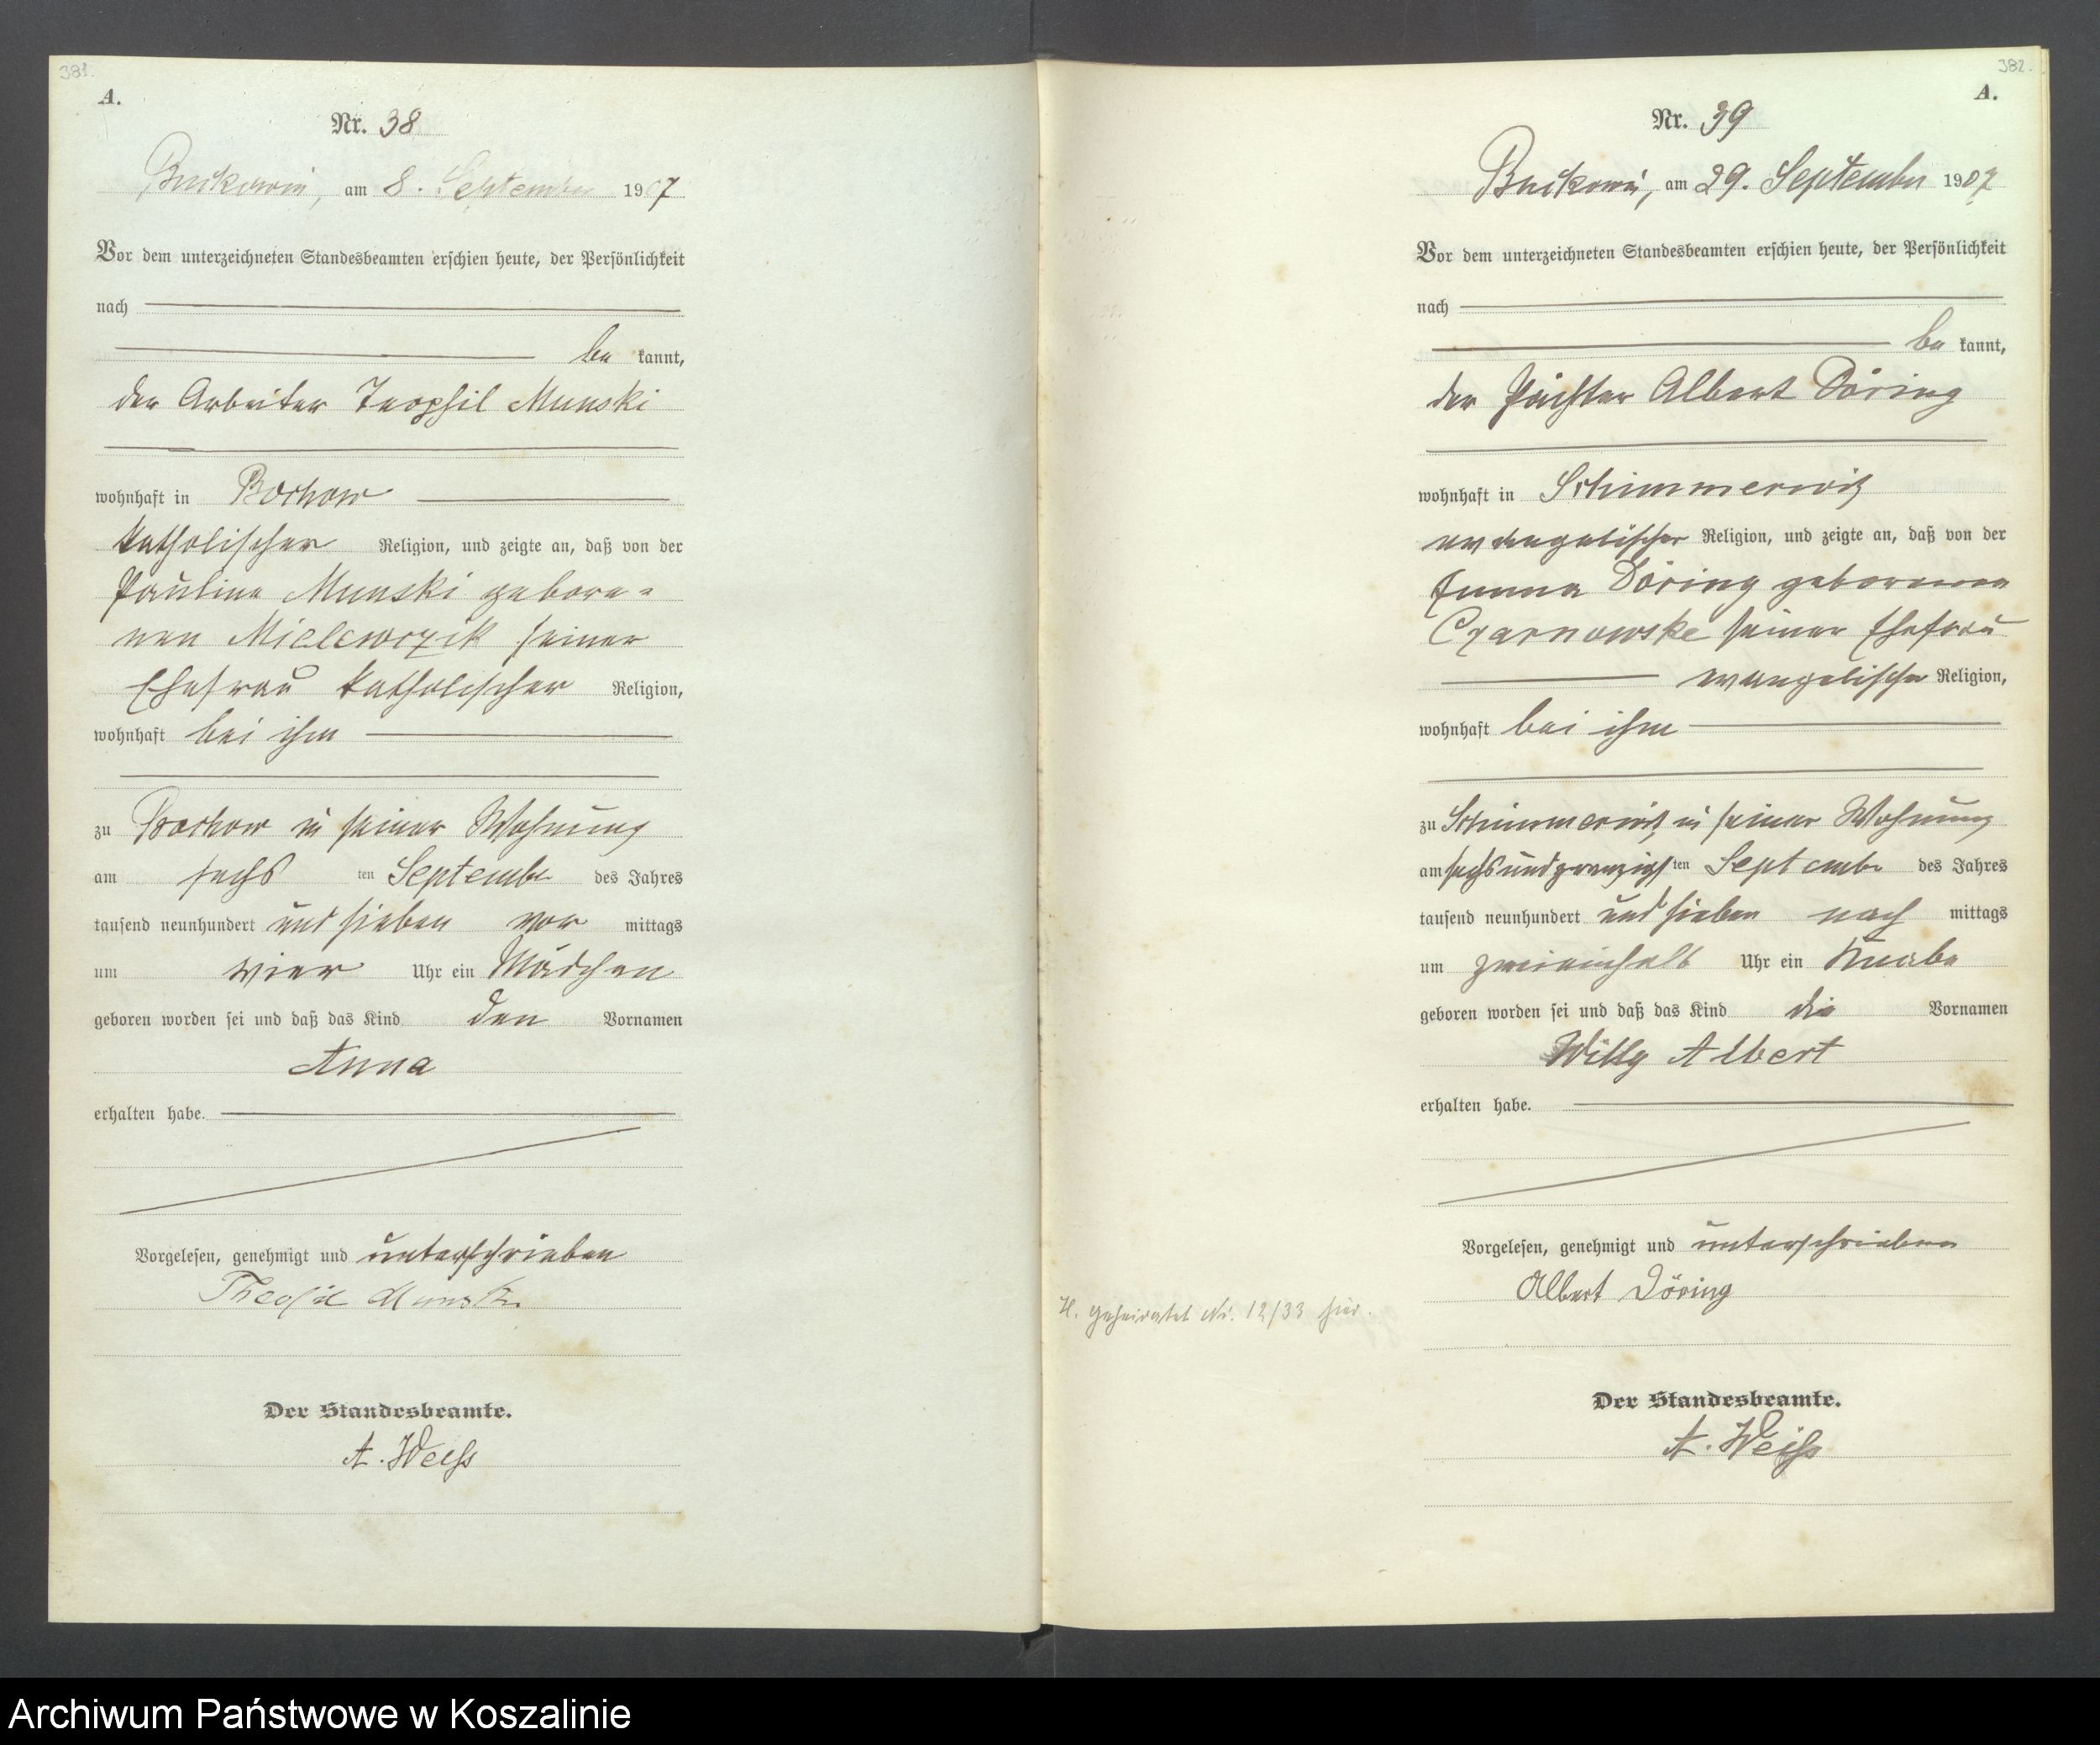 381.
A.
Nr. 38
Buckowin, am 8. September 1907
Vor dem unterzeichneten Standesbeamten erschien heute, der Persönlichkeit
nach
be kannt,
der Arbeiter Teophil Munski
wohnhaft in Bochow
katholischer Religion, und zeigte an, daß von der
Pauline Munski gebore-
nen Mielewczik seiner
Ehefrau katholischer Religion,
wohnhaft bei ihm
zu Bochow in seiner Wohnung
am sechs ten September des Jahres
tausend neunhundert und sieben vor mittags
um vier Uhr ein Mädchen
geboren worden sei und daß das Kind den Vornamen
Anna
erhalten habe.
Vorgelesen, genehmigt und unterschrieben
Theofil Munski
Der Standesbeamte.
A. Weiß
382.
A.
Nr. 39
Buckowin, am 29. September 1907
Vor dem unterzeichneten Standesbeamten erschien heute, der Persönlichkeit
nach
be kannt,
der Pächter Albert Döring
wohnhaft in Schimmerwitz
evangelischer Religion, und zeigte an, daß von der
Döring geborenen
Czarnowske seiner Ehefrau
evangelischer Religion,
wohnhaft bei ihm
zu Schimmerwitz in seiner Wohnung
am sechsundzwanzigsten September des Jahres
tausend neunhundert und sieben nach mittags
um zweieinhalb Uhr ein Knabe
geboren worden sei und daß das Kind die Vornamen
Willy Albert
erhalten habe.
Vorgelesen, genehmigt und unterschrieben
Albert Döring
H. geheiratet Nr. 12/33 hier.
Der Standesbeamte.
A. Weiß
Archiwum Państwowe w Koszalinie